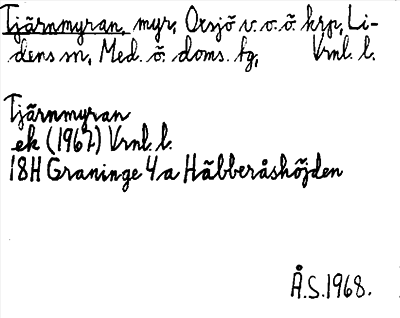 Tjärnmyran, myr, Oxsjö v. o. ö. krp, Li-
dens sn, Med. ö. doms. fg, Vrnl. l.
Tjärnmyran
ek (1967) Vrnl. l.
18H Graninge 4a Häbberåshöjden
Å.S. 1968.